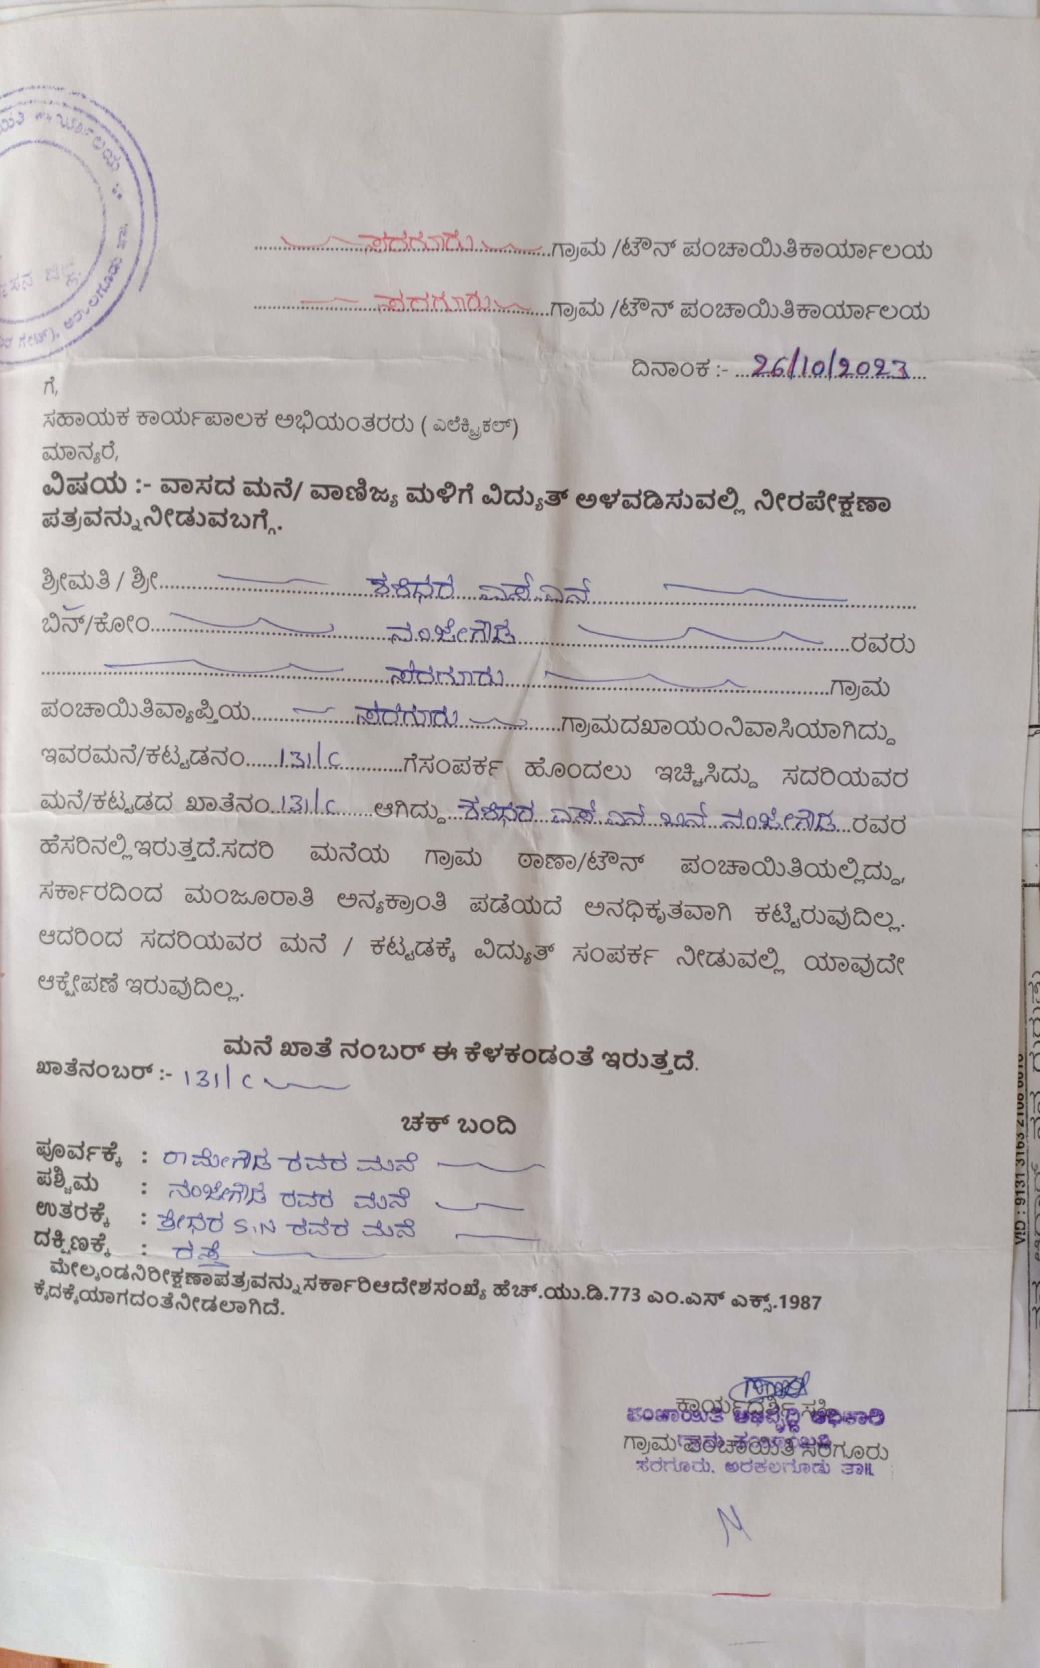 ಸರಗೂರು ಗ್ರಾಮ /ಟೌನ್ ಪಂಚಾಯಿತಿಕಾರ್ಯಾಲಯ
ಸರಗೂರು ಗ್ರಾಮ /ಟೌನ್ ಪಂಚಾಯಿತಿಕಾರ್ಯಾಲಯ
ದಿನಾಂಕ :- 26/10/2023
ಗೆ,
ಸಹಾಯಕ ಕಾರ್ಯಪಾಲಕ ಅಭಿಯಂತರರು ( ಎಲೆಕ್ಟ್ರಿಕಲ್)
ಮಾನ್ಯರೆ,
ವಿಷಯ :- ವಾಸದ ಮನೆ/ ವಾಣಿಜ್ಯ ಮಳಿಗೆ ವಿದ್ಯುತ್ ಅಳವಡಿಸುವಲ್ಲಿ ನೀರಪೇಕ್ಷಣಾ
ಪತ್ರವನ್ನು ನೀಡುವಬಗ್ಗೆ.
ಶ್ರೀಮತಿ / ಶ್ರೀ ಶಶಿಧರ ಎಸ್.ಎನ್
ಬಿನ್/ಕೋಂ ನಂಜೇಗೌಡ ರವರು
ಸರಗೂರು ಗ್ರಾಮ
ಪಂಚಾಯಿತಿವ್ಯಾಪ್ತಿಯ ಸರಗೂರು ಗ್ರಾಮದಖಾಯಂನಿವಾಸಿಯಾಗಿದ್ದು
ಇವರಮನೆ/ಕಟ್ಟಡನಂ 131/C ಗೆಸಂಪರ್ಕ ಹೊಂದಲು ಇಚ್ಚಿಸಿದ್ದು ಸದರಿಯವರ
ಮನೆ/ಕಟ್ಟಡದ ಖಾತೆನಂ 131/C ಆಗಿದ್ದು ಶಶಿಧರ ಎಸ್.ಎನ್ ಬಿನ್ ನಂಜೇಗೌಡ ರವರ
ಹೆಸರಿನಲ್ಲಿ ಇರುತ್ತದೆ.ಸದರಿ ಮನೆಯ ಗ್ರಾಮ ಠಾಣಾ/ಟೌನ್ ಪಂಚಾಯಿತಿಯಲ್ಲಿದ್ದು,
ಸರ್ಕಾರದಿಂದ ಮಂಜೂರಾತಿ ಅನ್ಯಕ್ರಾಂತಿ ಪಡೆಯದೆ ಅನಧಿಕೃತವಾಗಿ ಕಟ್ಟಿರುವುದಿಲ್ಲ.
ಆದರಿಂದ ಸದರಿಯವರ ಮನೆ / ಕಟ್ಟಡಕ್ಕೆ ವಿದ್ಯುತ್ ಸಂಪರ್ಕ ನೀಡುವಲ್ಲಿ ಯಾವುದೇ
ಆಕ್ಷೇಪಣೆ ಇರುವುದಿಲ್ಲ.
ಮನೆ ಖಾತೆ ನಂಬರ್ ಈ ಕೆಳಕಂಡಂತೆ ಇರುತ್ತದೆ.
ಖಾತೆನಂಬರ್ :- 131/C
ಚಕ್ ಬಂದಿ
ಪೂರ್ವಕ್ಕೆ : ರಾಮೇಗೌಡ ರವರ ಮನೆ
ಪಶ್ಚಿಮ : ನಂಜೇಗೌಡ ರವರ ಮನೆ
ಉತರಕ್ಕೆ : ಶ್ರೀಧರ S.N ರವರ ಮನೆ
ದಕ್ಷಿಣಕ್ಕೆ : ರಸ್ತೆ
ಮೇಲ್ಕಂಡನಿರೀಕ್ಷಣಾಪತ್ರವನ್ನು ಸರ್ಕಾರಿಆದೇಶಸಂಖ್ಯೆ ಹೆಚ್.ಯು.ಡಿ.773 ಎಂ.ಎಸ್ ಎಕ್ಸ್.1987
ಕೈದಕ್ಕೆಯಾಗದಂತೆನೀಡಲಾಗಿದೆ.
ಕಾರ್ಯದರ್ಶಿ
ಪಂಚಾಯಿತಿ ಅಭಿವೃದ್ಧಿ ಅಧಿಕಾರಿ
ಗ್ರಾಮ ಪಂಚಾಯಿತಿ ಸರಗೂರು
ಸರಗೂರು, ಅರಕಲಗೂಡು ತಾ॥